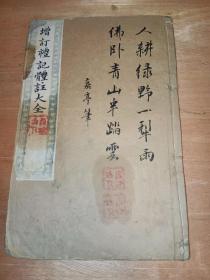 增訂禮記體註大全
人耕绿野一犁雨
佛卧青山半踏雲